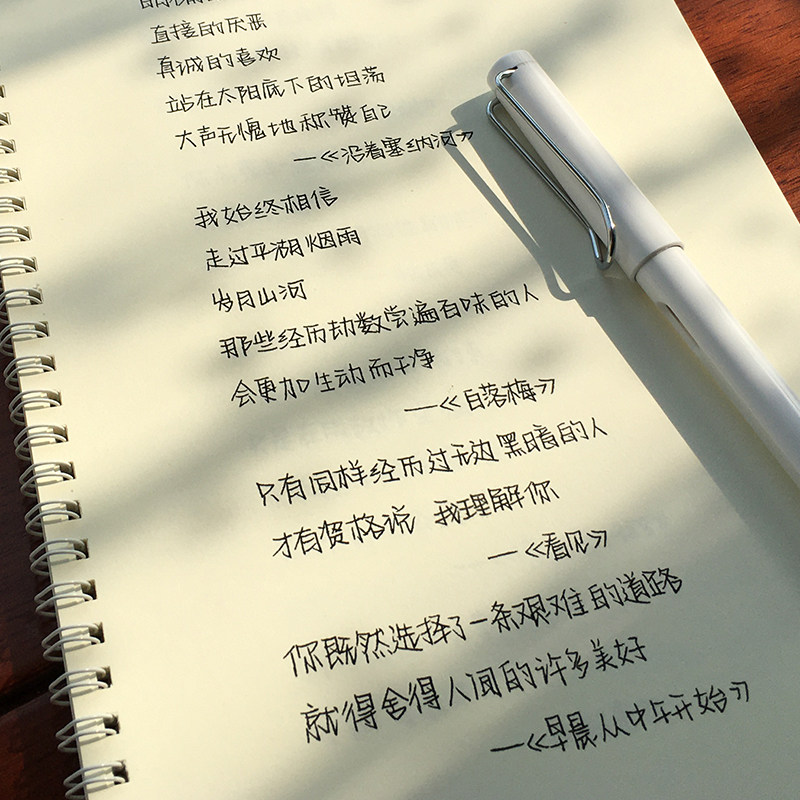 直接的厌恶
真诚的喜欢
站在太阳底下的坦荡
大声无愧地称赞自己
—《沿着塞纳河》
我始终相信
走过平湖烟雨
岁月山河
那些经历劫数尝遍百味的人
会更加生动而干净
—《白落梅》
只有同样经历过无边黑暗的人
才有资格说 我理解你
—《看见》
你既然选择了一条艰难的道路
就得舍得人间的许多美好
—《早晨从中午开始》